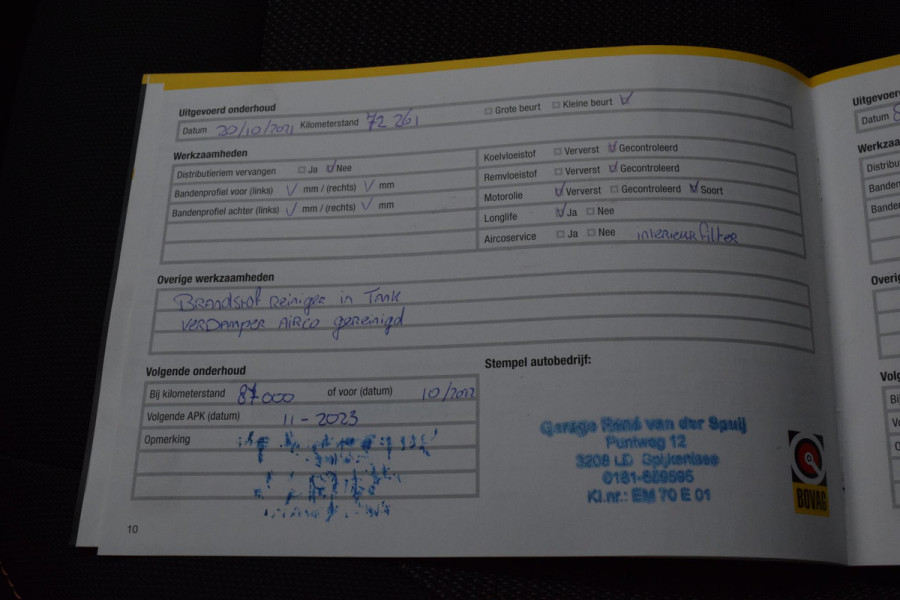 Uitgevoerd onderhoud
Datum 20/10/2021 Kilometerstand 72 261 Grote beurt Kleine beurt
Werkzaamheden
Distributieriem vervangen Ja Nee
Bandenprofiel voor (links) mm / (rechts) mm
Bandenprofiel achter (links) mm / (rechts) mm
Koelvloeistof Ververst Gecontroleerd
Remvloeistof Ververst Gecontroleerd
Motorolie Ververst Gecontroleerd Soort
Longlife Ja Nee
Aircoservice Ja Nee interieurfilter
Overige werkzaamheden
Brandstof reiniger in Tank
Verdamper Airco gereinigd
Volgende onderhoud
Bij kilometerstand 87000 of voor (datum) 10/2022
Volgende APK (datum) 11-2023
Opmerking
Stempel autobedrijf:
Garage René van der Spuij
Puntweg 12
3208 LD Spijkenisse
0181-659595
Kl.nr.: EM 70 E 01
BOVAG
10
Uitgevoer
Datum
Werkza
Distribu
Banden
Banden
Overig
Volg
Bij